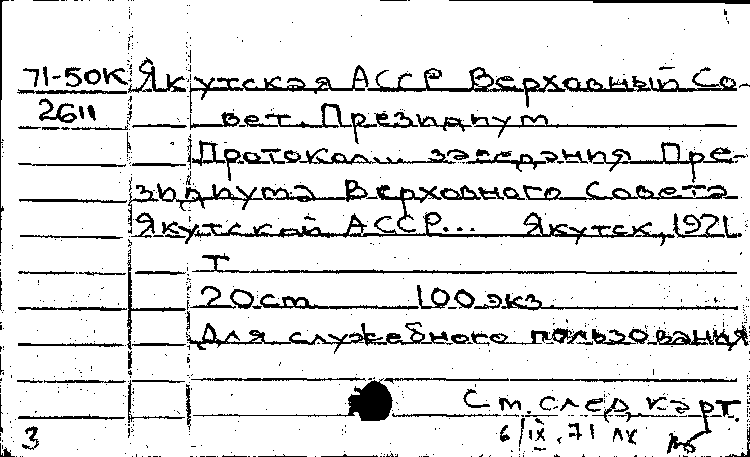 71-50К Якутская АССР Верховный Со-
2611 вет. Президиум
Протокол... заседания Пре-
зидиума Верховного Совета
Якутской АССР... Якутск, 1971
т
20 cm 100 экз
Для служебного пользования
См. след. карт.
3 6/IX.71 лк